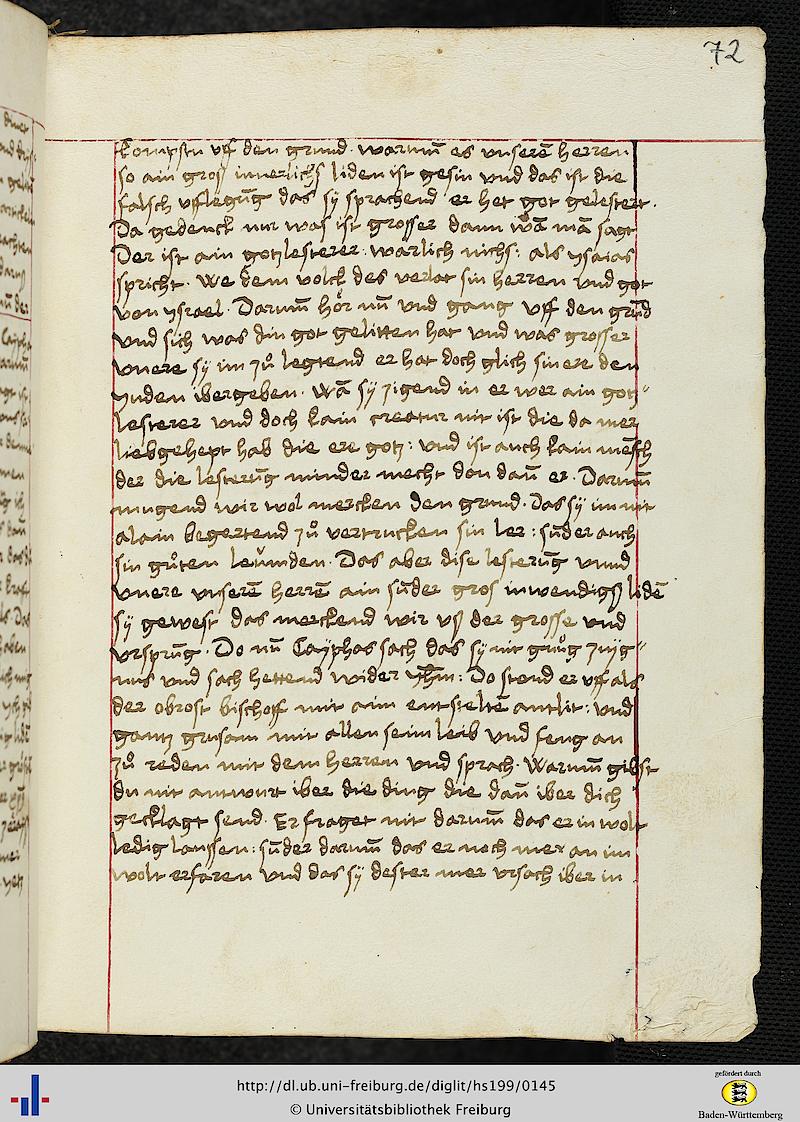 72
kompstu uff den grund. warum̄ es unserē herren
so ain gross innerlichs liden ist gesin und das ist die
falsch ufflegūg das sÿ sprachend er het got gelestert.
Da gedenck nur was ist grosser dann wā mā sagt
Der ist ain gotzlesterer. warlich nichs: als ysaias
spricht. We dem volck des verlat sin herren und got
von ysrael. Darum̄ hör nū und gang uff den grūd
und sich was din got gelitten hat und was grosser
unere sÿ im zů legtend er hat doch glich sin ere den
yuden ibergeben. Wā sÿ zigend in er wer ain gotz"
lesterer und doch kain creatur nit ist die da mer
liebgehept hab die ere gotz: und ist auch kain mēsch
der die lesterūg minder mecht don dañ er. Darum̄
mugend wir wol mercken den grund. Das sÿ im nit
alain begertend zů vertrucken sin ler: sūder auch
sin gůten leumden. Das aber dise lesterūg unnd
unere unserē herrē ain sūder gros inwendigs lidē
sÿ gewest das merckend wir uß der grosse und
ursprūg. Do nū Cayphas sach das sÿ nit gnůg zuig"
nus und sach hettend wider yhm: Do stend er uff als
der obrost bischoff mit aim entstelten antlit: und
gantz grusam mit allen seim leib und feng an
zů reden mit dem herren und sprach. Warum̄ gibst
du nit antwurt iber die ding die dañ iber dich
gecklagt send. Er fraget nit darum̄ das er in wolt
ledig laussen: sūder darum̄ das er noch mer an im
wolt erfaren und das sÿ dester mer ursach iber in
http://dl.ub.uni-freiburg.de/diglit/hs199/0145
© Universitätsbibliothek Freiburg
gefördert durch
Baden-Württemberg